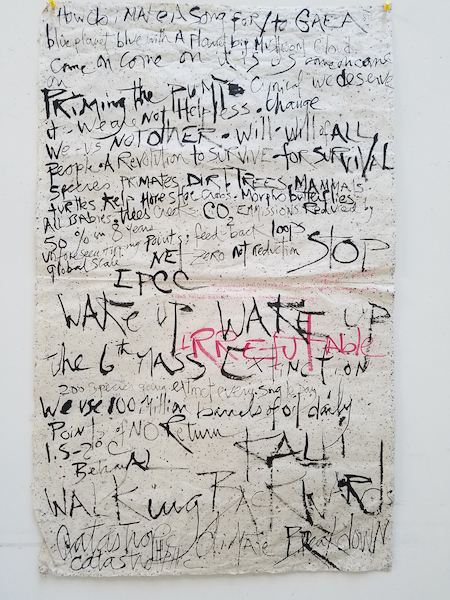 How do I MAKE A Song for/to GAEA
blue planet blue with A planet big Mushroom Cloud
Come on come on it is us
PRIMING the PUMP Cynical we deserve
it - We are Not Helpless. Change
We - us NOT OTHER. Will - Will of ALL
People. A Revolution to SURVIVE - for SURVIVAL
Species PRIMATES DIRT TREES MAMMALS
turtles Kelp Horse shoe Crabs. Morpho butterflies
ALL BABIES, trees CO2 EMISSIONS Reduced by
50% in 8 years
points: feed back loops
global scale NET zero not reduction STOP
IPCC
WAKE UP WAKE UP
IRREfutAble
the 6th MASS EXTINCTION
200 species going extinct every single day
We use 100 Million barrels of oil daily
Points of NO Return
1.5-2°C
WALKing BACKWARDs
Catastrophic Climate BreakdowN
catastrophic